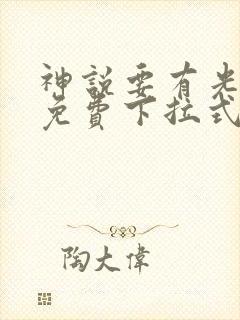 神說要有光
免費下拉式
陶大偉